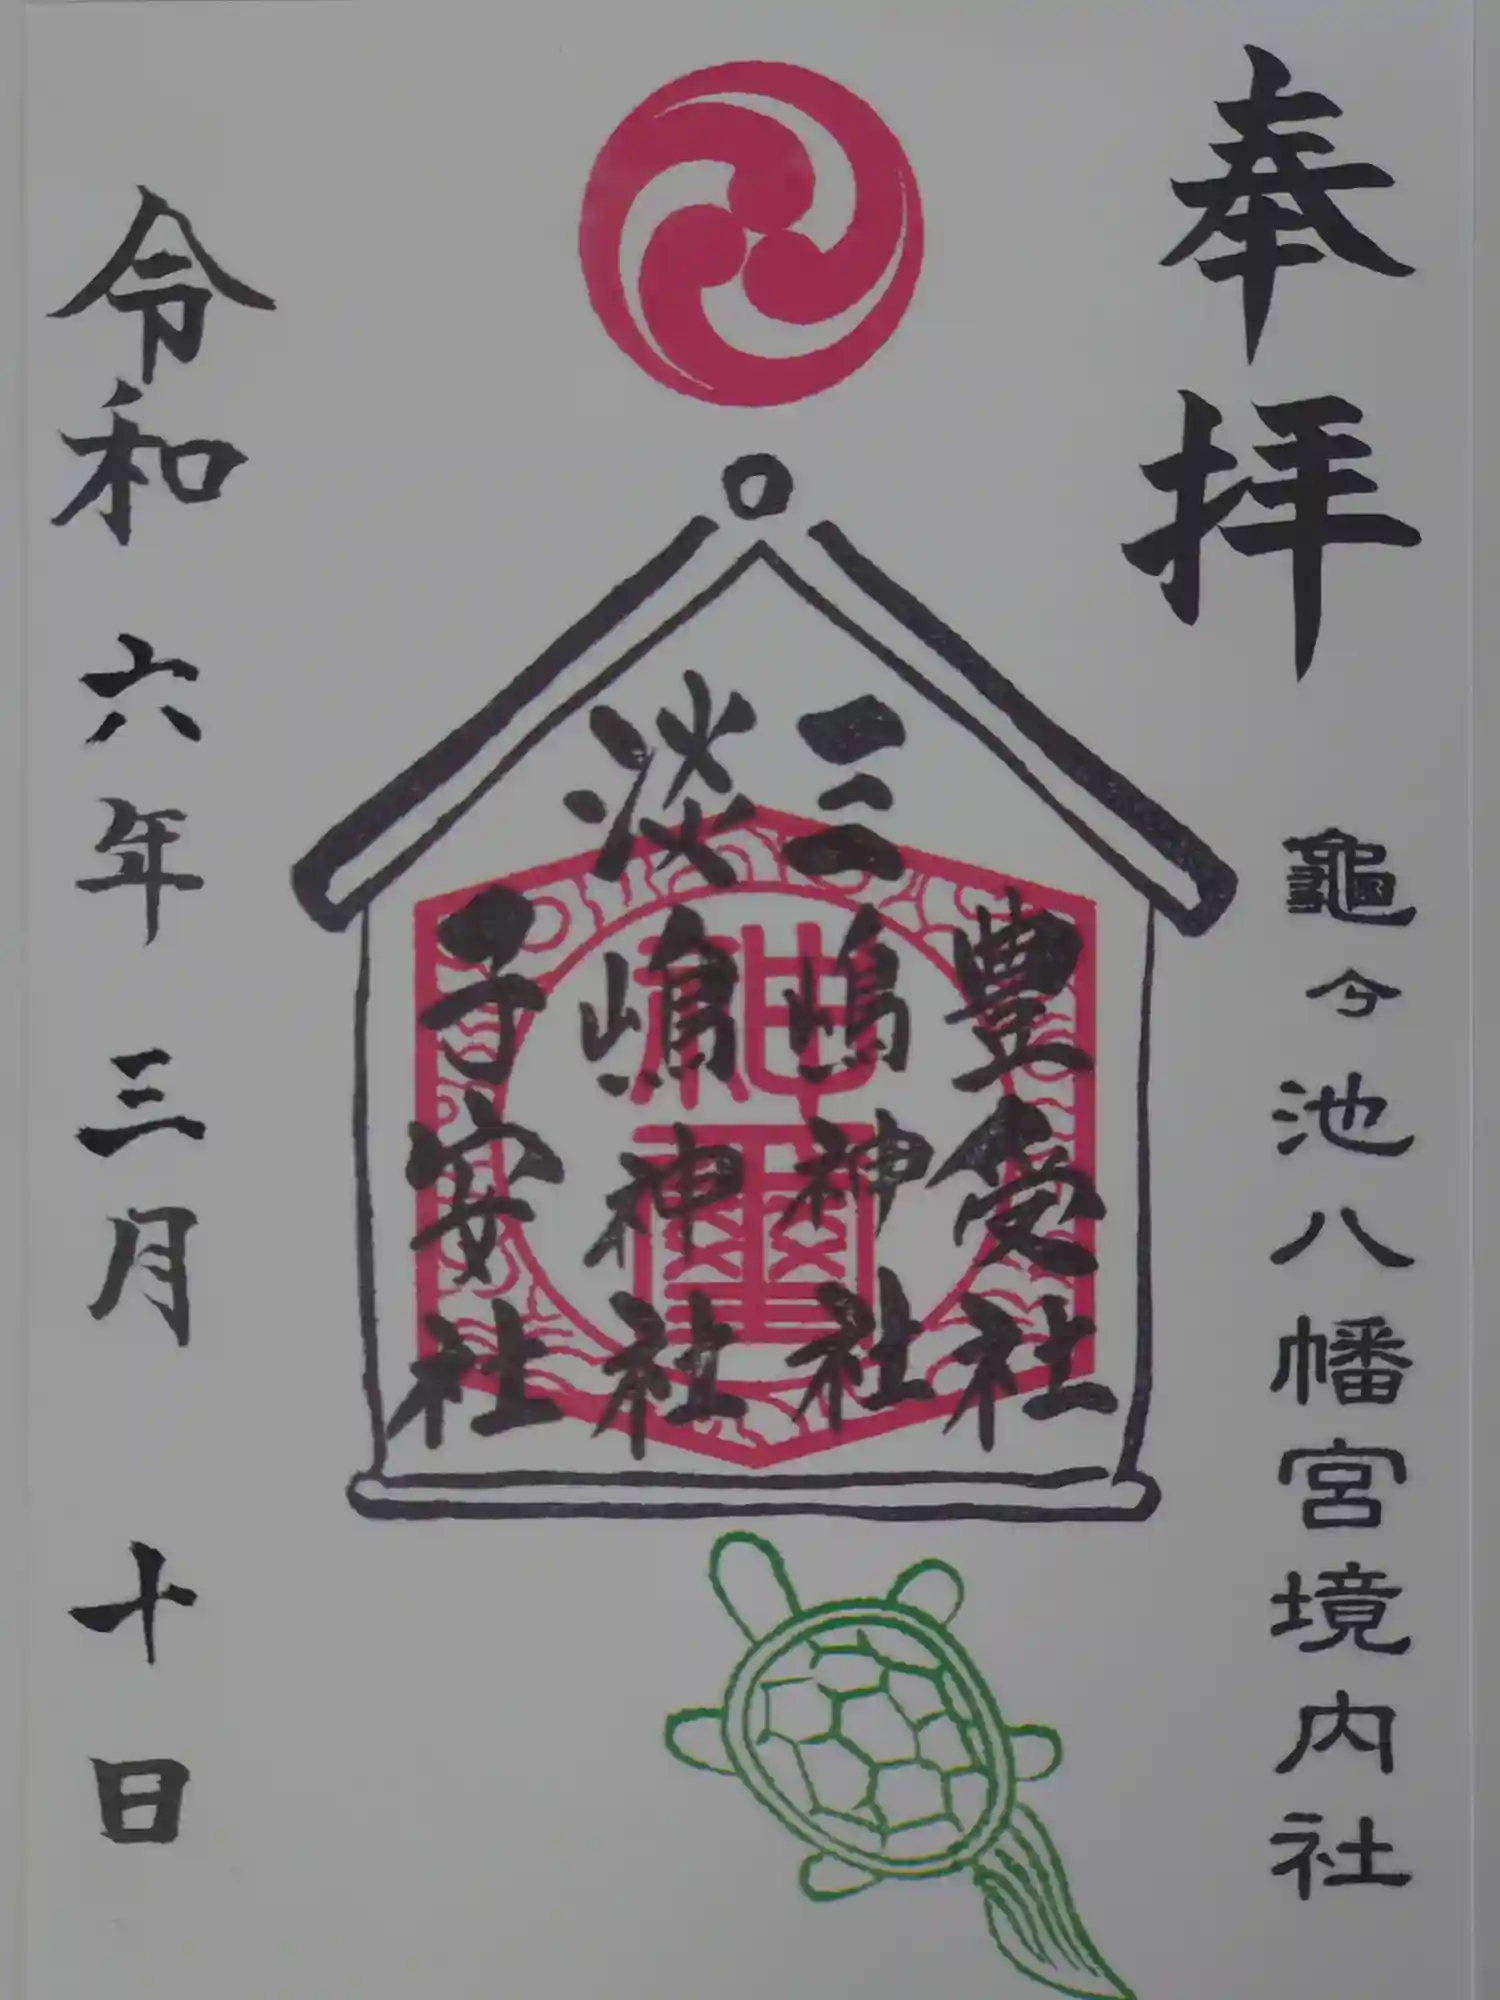 奉拝
龜今池八幡宮境内社
豊受社
三嶋神社
淡嶋神社
子安社
神璽
令和六年三月十日